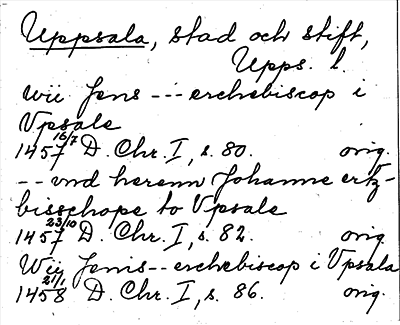 Uppsala, stad och stift,
Upps. l.
Wii Jens --- erchebiscop i
Vpsale
1457 16/7 D. Chr. I, s. 80. orig.
-- vnd herenn Johanne ertz-
bisschope to Vpsale
1457 23/10 D. Chr. I, s. 82. orig.
Wij Jenis -- erchebiscop i Vpsala
1458 21/1 D. Chr. I, s. 86. orig.